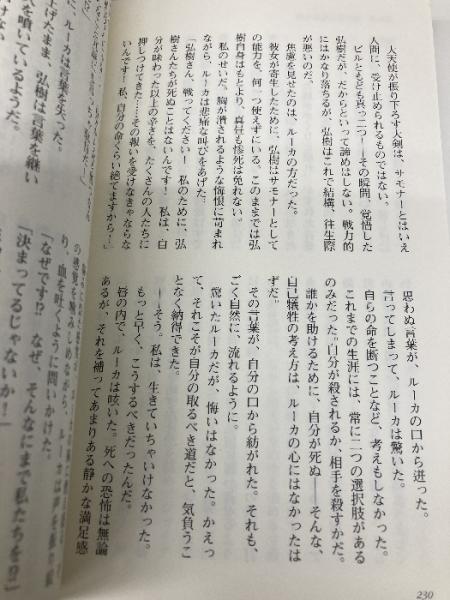 大天使が振り下ろす大剣は、サモナーとはいえ
人間に、受け止められるものではない。
ビルともども真っ二つ！――その瞬間、覚悟した
弘樹だが、だからといって諦めはしない。戦力的
にはかなり落ちるが、弘樹はこれで結構、往生際
が悪いのだ。
焦慮を見せたのは、ルーカの方だった。
彼女が寄生したために、弘樹はサモナーとして
の能力を、何一つ使えずにいる。このままでは弘
樹自身はもとより、真昼も惨死は免れない。
私のせいだ。胸が潰されるような悔恨に苛まれ
ながら、ルーカは悲痛な叫びをあげた。
「弘樹さん、戦ってください！　私のために、弘
樹さんたちが死ぬことはないんです！　私は、自
分が味わった以上の辛さを、たくさんの人たちに
押しつけてきた……その報いを受けなきゃならな
いんです！　私、自分の命くらい絶てますから！」
思わぬ言葉が、ルーカの口から迸った。
言ってしまって、ルーカは驚いた。
自らの命を断つことなど、考えもしなかった。
これまでの生涯には、常に二つの選択肢がある
のみだった。自分が殺されるか、相手を殺すかだ。
誰かを助けるために、自分が死ぬ――そんな、
自己犠牲の考え方は、ルーカの心にはなかったは
ずだ。
その言葉が、自分の口から紡がれた。それも、
ごく自然に、流れるように。
驚いたルーカだが、悔いはなかった。かえっ
て、それこそが自分の取るべき道だと、気負うこ
となく納得できた。
――そう。私は、生きていちゃいけなかった。
もっと早く、こうするべきだったんだ。
唇の内で、ルーカは呟いた。死への恐怖は無論
あるが、それを補ってあまりある静かな満足感
230
ルーカは言葉を失った。
弘樹は言葉を継い
を噴いているようだ。
り、血を吐くように問いかけた。
「なぜです!?　なぜ、そんなにまで私たちを!?」
「決まってるじゃないか！」